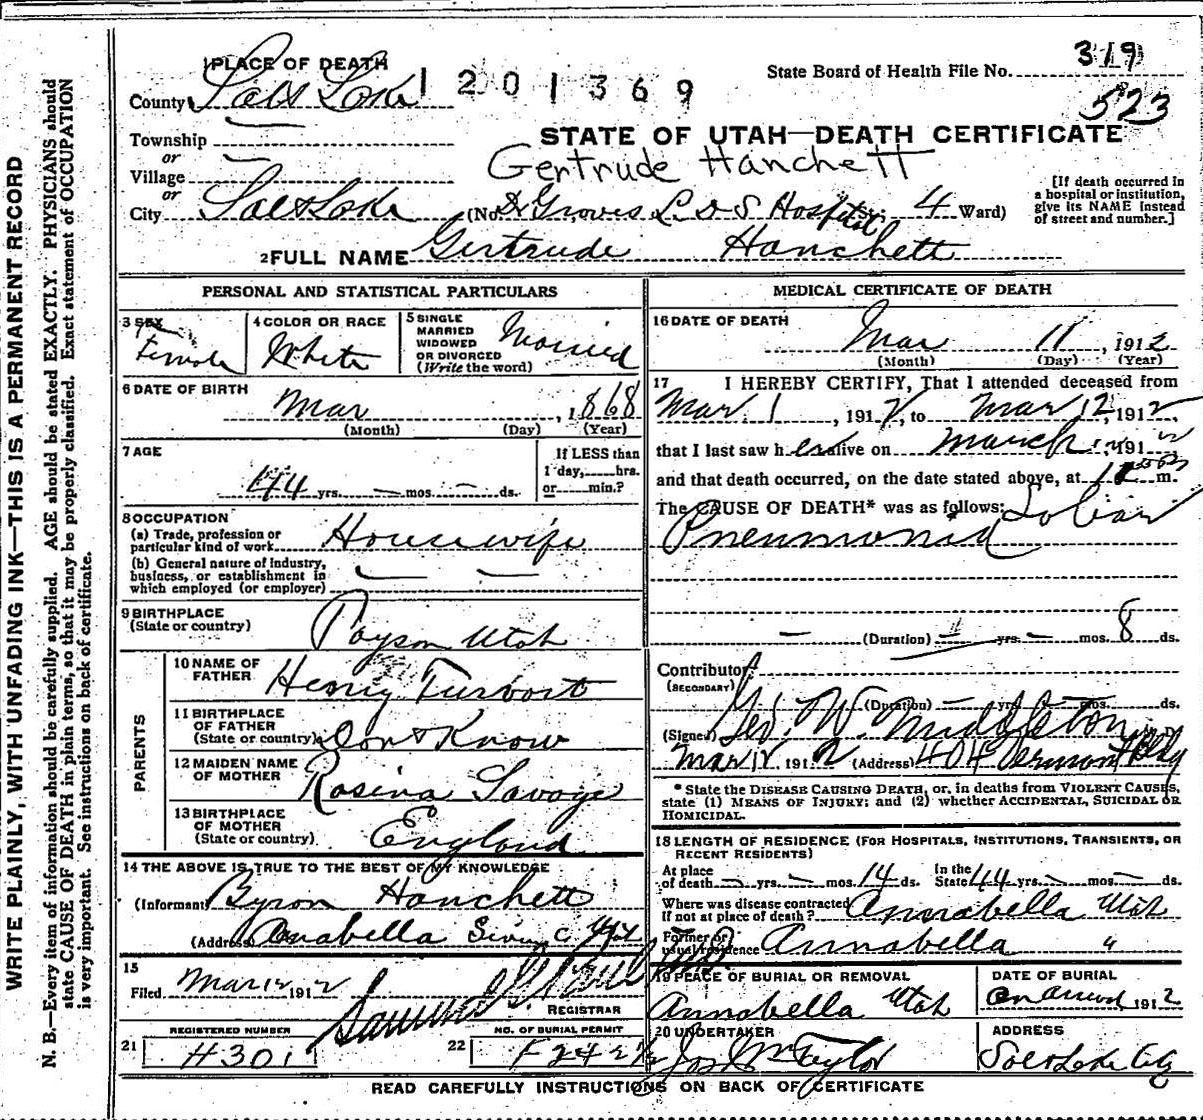 1 PLACE OF DEATH
1201369
State Board of Health File No. 319
523
County Salt Lake
STATE OF UTAH—DEATH CERTIFICATE
Township
or
Gertrude Hanchett
Village
or
City Salt Lake (No. Groves L D S Hospital St. 4 Ward)
[If death occurred in a hospital or institution, give its NAME instead of street and number.]
2 FULL NAME Gertrude Hanchett
PERSONAL AND STATISTICAL PARTICULARS
3 SEX Female
4 COLOR OR RACE White
5 SINGLE MARRIED WIDOWED OR DIVORCED (Write the word) Married
6 DATE OF BIRTH
Mar , 1868
(Month) (Day) (Year)
7 AGE
44 yrs. — mos. — ds.
If LESS than 1 day, hrs. or min.?
8 OCCUPATION
(a) Trade, profession or particular kind of work Housewife
(b) General nature of industry, business, or establishment in which employed (or employer) — —
9 BIRTHPLACE
(State or country) Payson Utah
PARENTS
10 NAME OF FATHER Henry
11 BIRTHPLACE OF FATHER (State or country) Dont Know
12 MAIDEN NAME OF MOTHER Rosina Savage
13 BIRTHPLACE OF MOTHER (State or country) England
14 THE ABOVE IS TRUE TO THE BEST OF MY KNOWLEDGE
(Informant) Byron Hanchett
(Address) Anabella
15
Filed Mar 12 1912
REGISTRAR
REGISTERED NUMBER
NO. OF BURIAL PERMIT
21 H301
22
MEDICAL CERTIFICATE OF DEATH
16 DATE OF DEATH
Mar 11 , 1912
(Month) (Day) (Year)
17 I HEREBY CERTIFY, That I attended deceased from
Mar. 1 , 1912, to Mar 12, 1912
that I last saw her alive on March 191
and that death occurred, on the date stated above, at m.
The CAUSE OF DEATH* was as follows: Lobar
Pneumonia
— (Duration) — yrs. — mos. 8 ds.
Contributory
(SECONDARY)
(Duration) — yrs. mos. ds.
(Signed) Geo. W. Middleton
Mar 12 1912 (Address) 404 Vermont Bldg
* State the DISEASE CAUSING DEATH, or, in deaths from VIOLENT CAUSES, state (1) MEANS OF INJURY; and (2) whether ACCIDENTAL, SUICIDAL OR HOMICIDAL.
18 LENGTH OF RESIDENCE (FOR HOSPITALS, INSTITUTIONS, TRANSIENTS, OR RECENT RESIDENTS)
At place of death — yrs. — mos. 14 ds. In the State 44 yrs. — mos. — ds.
Where was disease contracted If not at place of death? Annabella Utah
Former or usual residence Annabella "
19 PLACE OF BURIAL OR REMOVAL
Annabella Utah
DATE OF BURIAL
1912
20 UNDERTAKER
Jos Wm Taylor
ADDRESS
Salt Lake City
READ CAREFULLY INSTRUCTIONS ON BACK OF CERTIFICATE
WRITE PLAINLY, WITH UNFADING INK—THIS IS A PERMANENT RECORD
N. B.—Every item of information should be carefully supplied. AGE should be stated EXACTLY. PHYSICIANS should
state CAUSE OF DEATH in plain terms, so that it may be properly classified. Exact statement of OCCUPATION
is very important. See instructions on back of certificate.